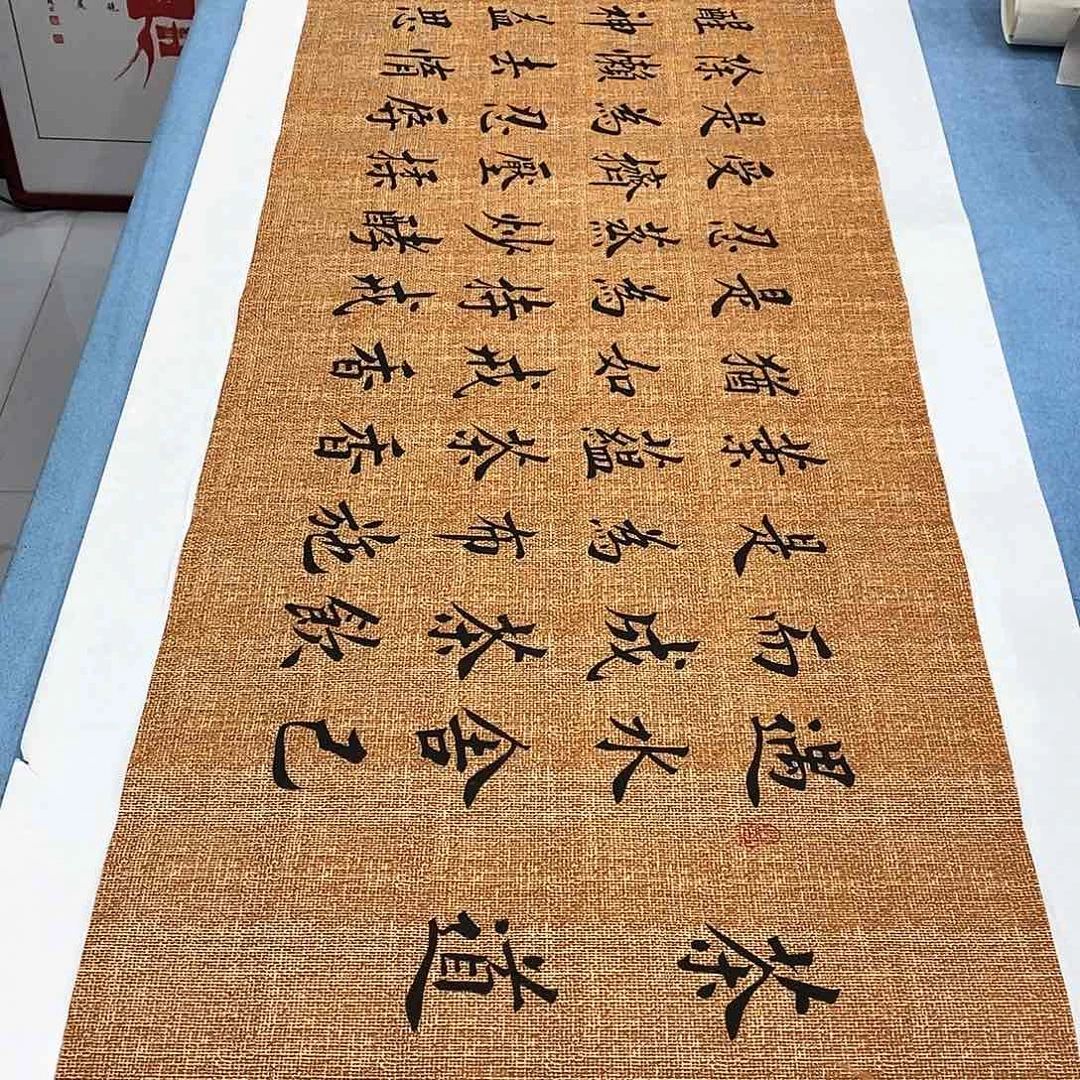 茶道
遇水舍己
而成茶飲
是為布施
葉蘊茶香
猶如戒香
是為持戒
忍蒸炒酵
受擠壓揉
是為忍辱
除懶去惰
醒神益思